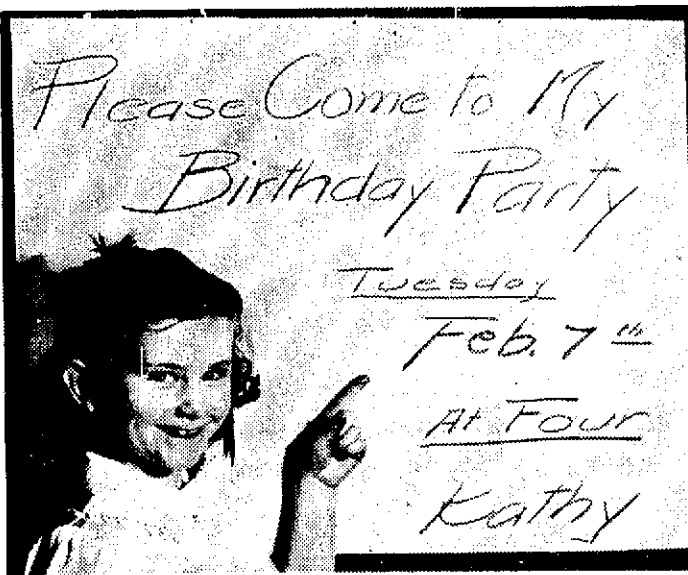 Please Come to My
Birthday Party
Tuesday
Feb. 7th
At Four
Kathy